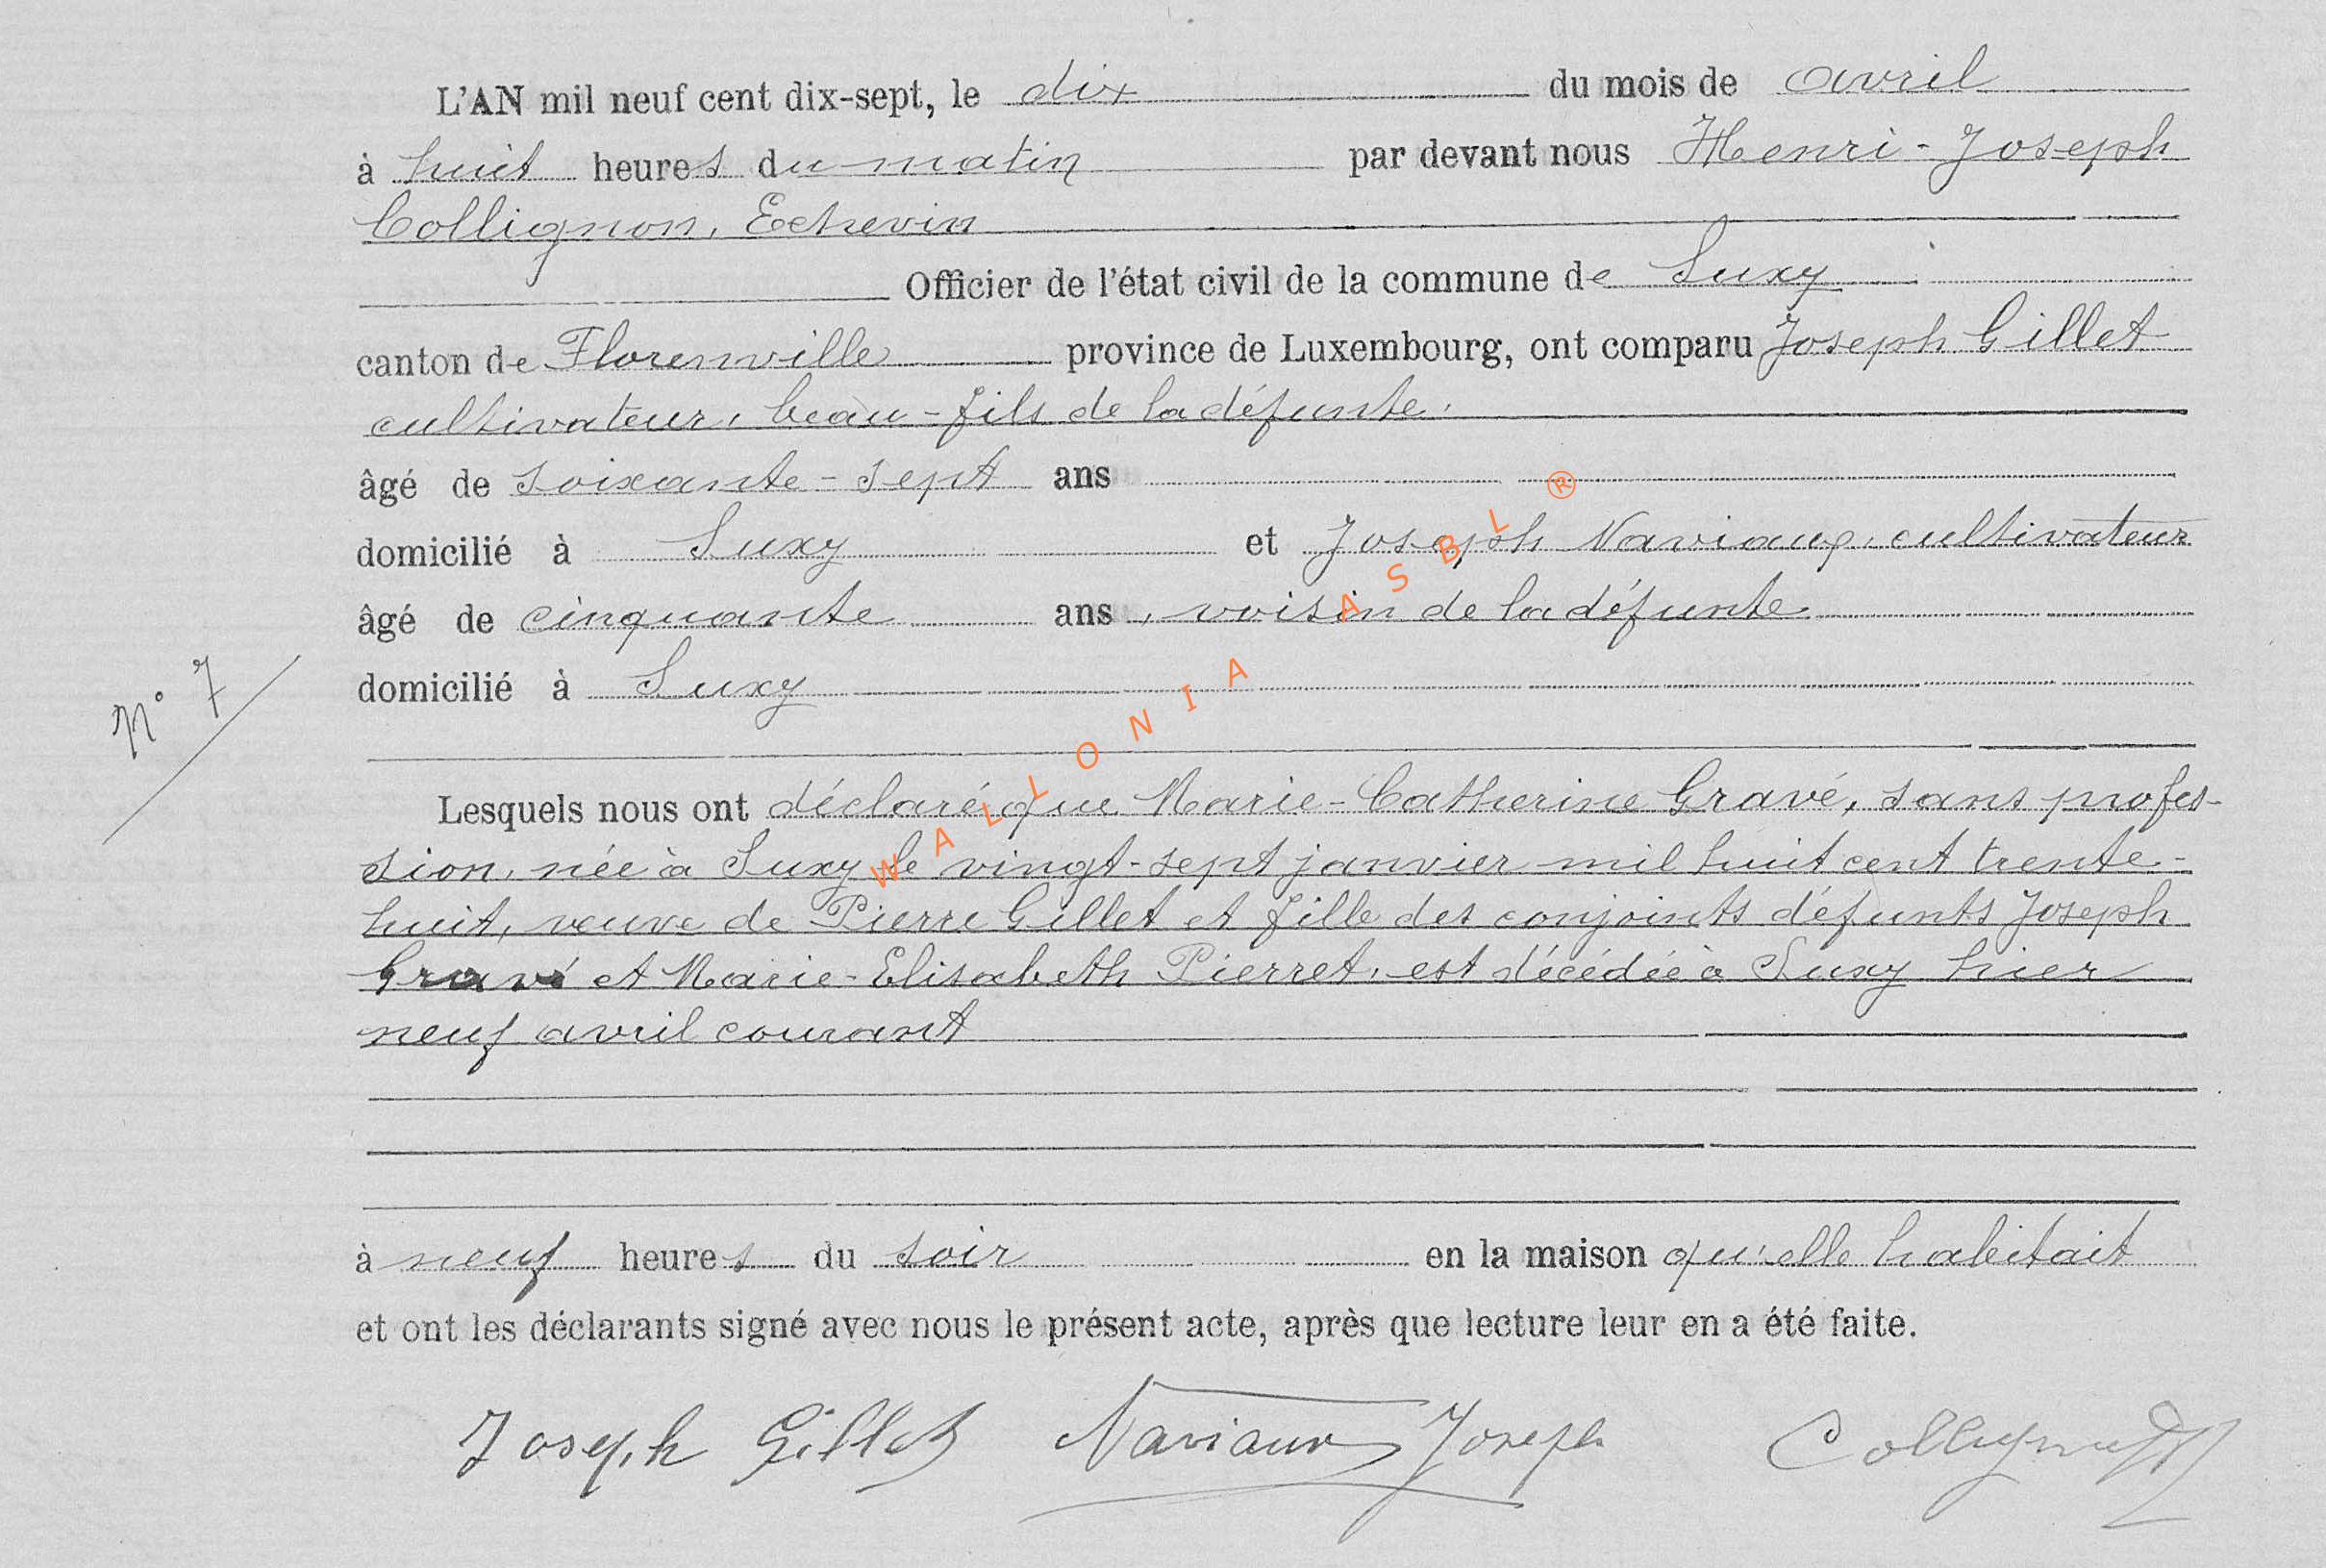 L'AN mil neuf cent dix-sept, le dix du mois de avril
à huit heures du matin par devant nous Henri-Joseph
Collignon, Echevin
Officier de l'état civil de la commune de Suxy
canton de Florenville province de Luxembourg, ont comparu Joseph Gillet
cultivateur, beau-fils de la défunte,
âgé de soixante-sept ans
domicilié à Suxy et Joseph Naviaux, cultivateur
âgé de cinquante ans, voisin de la défunte
domicilié à Suxy
N° 7
Lesquels nous ont déclaré que Marie-Catherine Gravé, sans profes-
sion, née à Suxy le vingt-sept janvier mil huit cent trente-
huit, veuve de Pierre Gillet et fille des conjoints défunts Joseph
Gravé et Marie-Elisabeth Pierret, est décédée à Suxy hier
neuf avril courant
à neuf heures du soir en la maison qu'elle habitait
et ont les déclarants signé avec nous le présent acte, après que lecture leur en a été faite.
Joseph Gillet Naviaux Joseph Collignon
WALLONIA ASBL ®